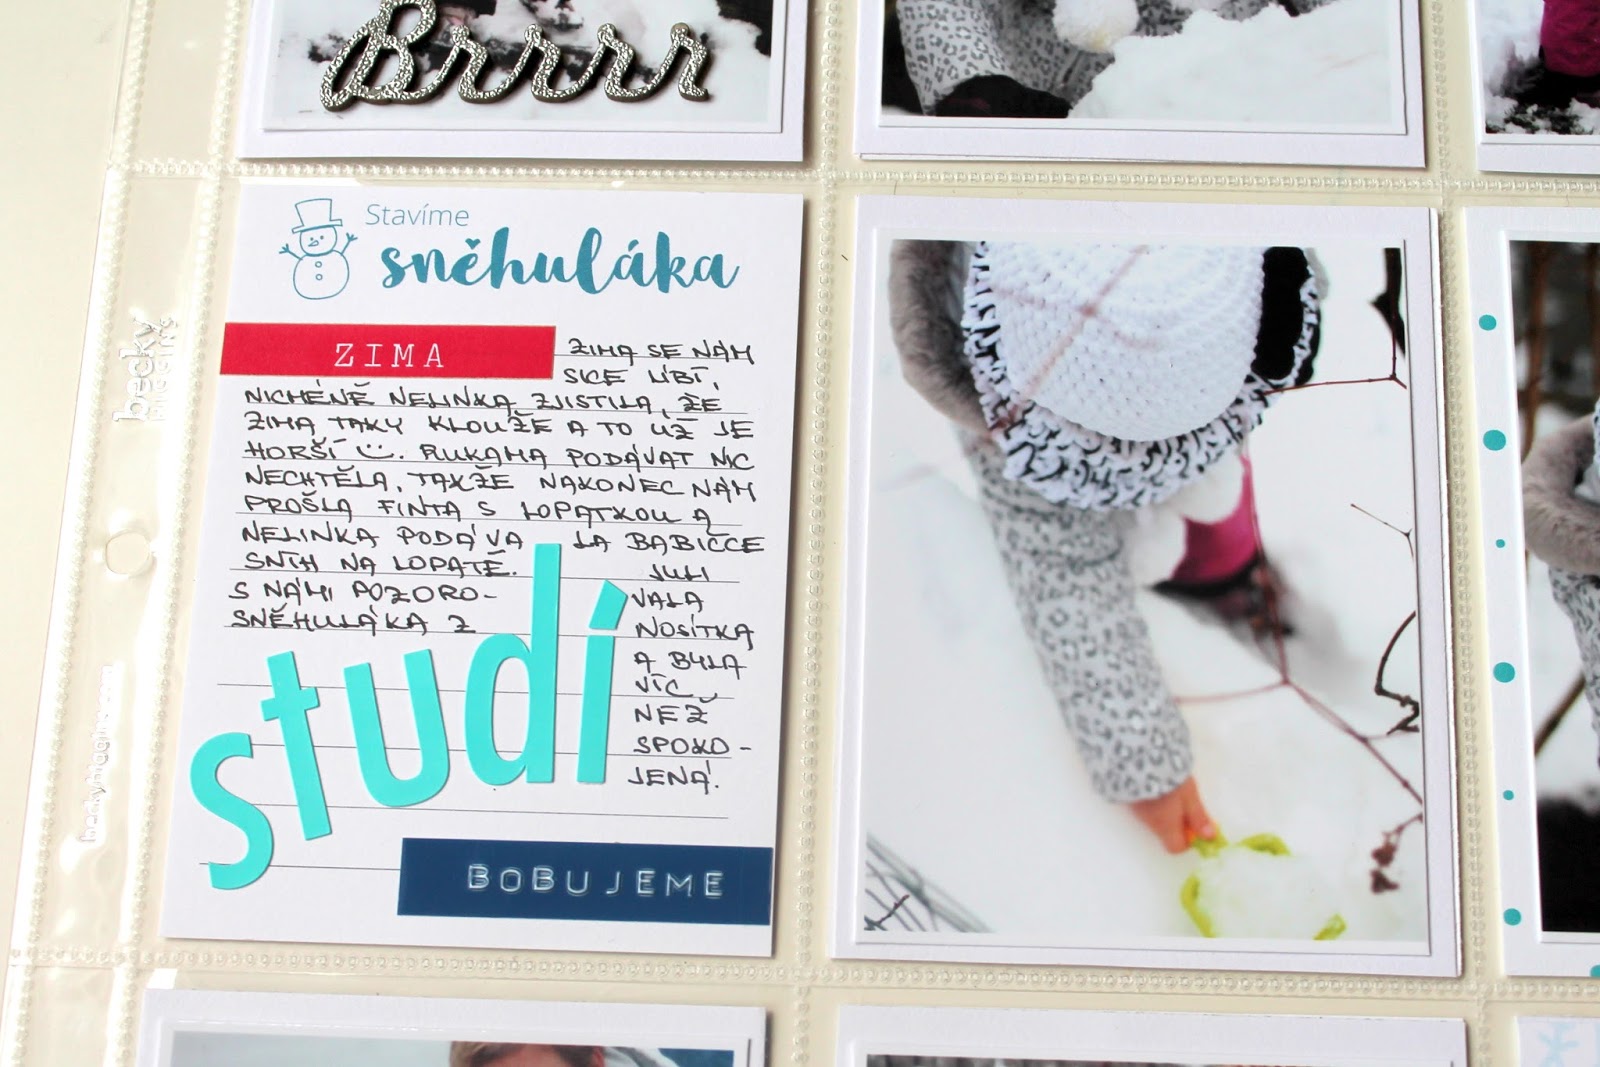 Brrrr
Stavíme
sněhuláka
ZIMA
ZIMA SE NÁM
SICE LÍBÍ,
NICMÉNĚ NELINKA ZJISTILA, ŽE
ZIMA TAKY KLOUŽE A TO UŽ JE
HORŠÍ. RUKAMA PODÁVAT NIC
NECHTĚLA, TAKŽE NAKONEC NÁM
PROŠLA FINTA S LOPATKOU A
NELINKA PODÁVALA BABIČCE
SNÍH NA LOPATĚ. JULI
S NÁMI POZORO-VALA
SNĚHULÁKA Z NOSÍTKA
A BYLA
VÍC
NEŽ
SPOKO-
JENÁ!
studí
BOBUJEME
becky
beckyhiggins.com